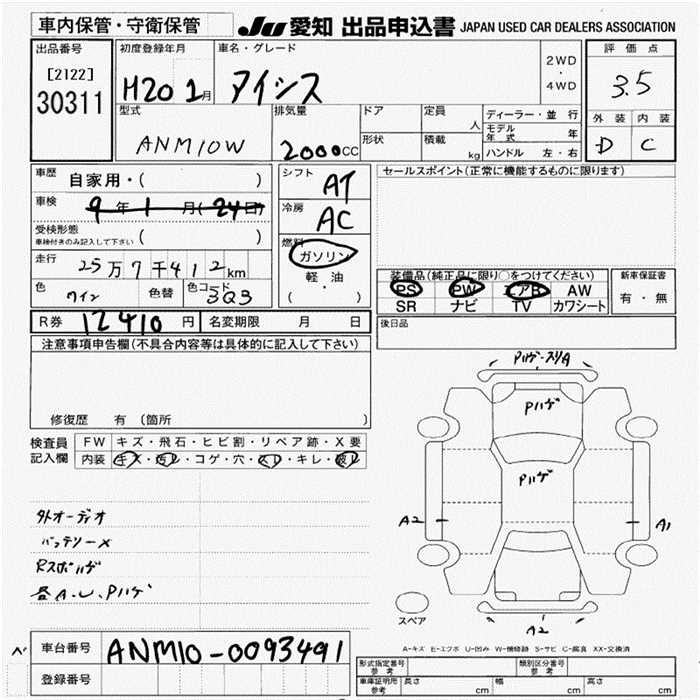 車内保管・守衛保管
JU 愛知 出品申込書 JAPAN USED CAR DEALERS ASSOCIATION
出品番号
[2122]
30311
初度登録年月
H20 1月
車名・グレード
アイシス
2WD
・
4WD
評価点
3.5
外装 内装
D C
型式
ANM10W
排気量
2000CC
ドア
形状
定員 人
積載 kg
ディーラー・並行
モデル年式 年
ハンドル 左・右
車歴 自家用・( )
車検 9年1月(24日)
受検形態
車検付きのみ記入して下さい ( )
走行 25万7千412km
色 ワイン 色替 色コード 3Q3
シフト AT
冷房 AC
燃料
ガソリン
軽・油
( )
セールスポイント(正常に機能するものに限ります)
装備品(純正品に限り○をつけてください)
PS PW エアB AW
SR ナビ TV カワシート
新車保証書
有・無
R券 12410円 名変期限 月 日
後日品
注意事項申告欄(不具合内容等は具体的に記入して下さい)
修復歴 有 (箇所 )
検査員記入欄
FW キズ・飛石・ヒビ割・リペア跡・X要
内装 キズ・汚レ・コゲ・穴・スレ・キレ・破レ
外オーディオ
バッテリー×
Rスポハゲ
各A.U.Pハゲ
Pハゲ・スリA
Pハゲ
Pハゲ
A2
A1
スペア
A2
A-キズ E-エクボ U-凹み W-補修跡 S-サビ C-腐食 XX-交換済
車台番号 ANM10-0093491
登録番号
形式指定番号 参考
類別区分番号 参考
車庫証明用 参考 長さ cm 幅 cm 高さ cm